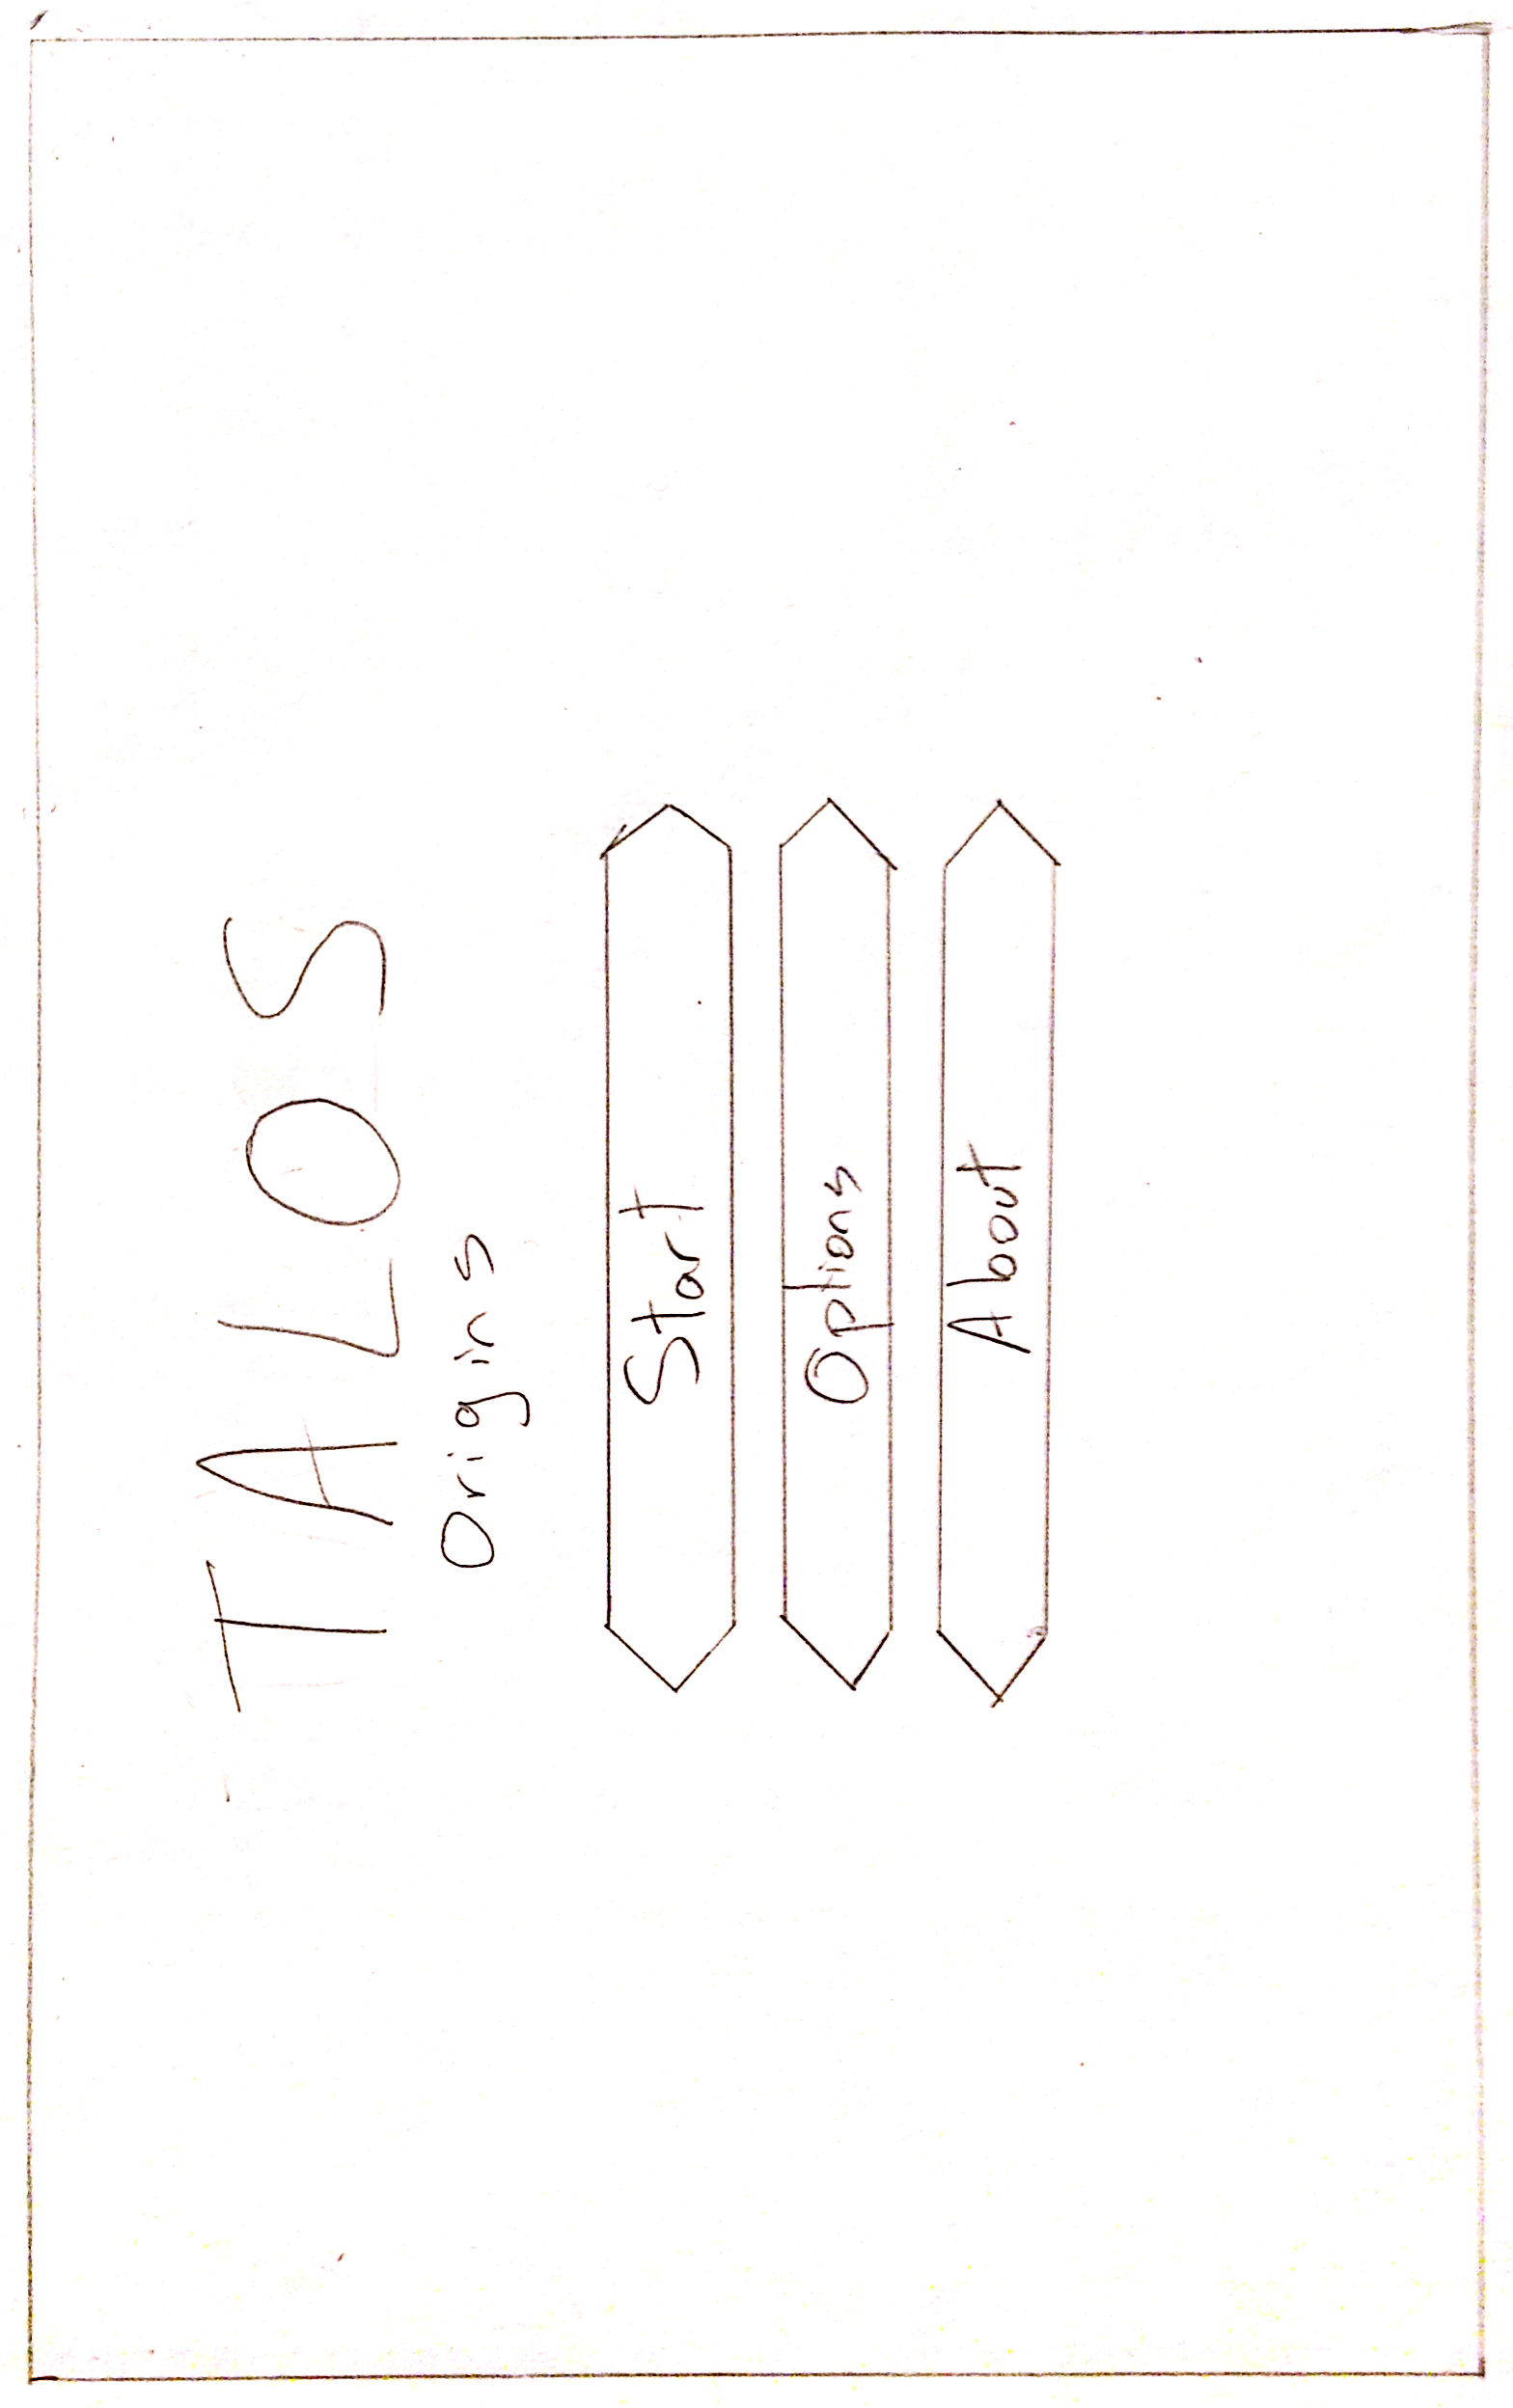 TALOS
Origins
Start
Options
About